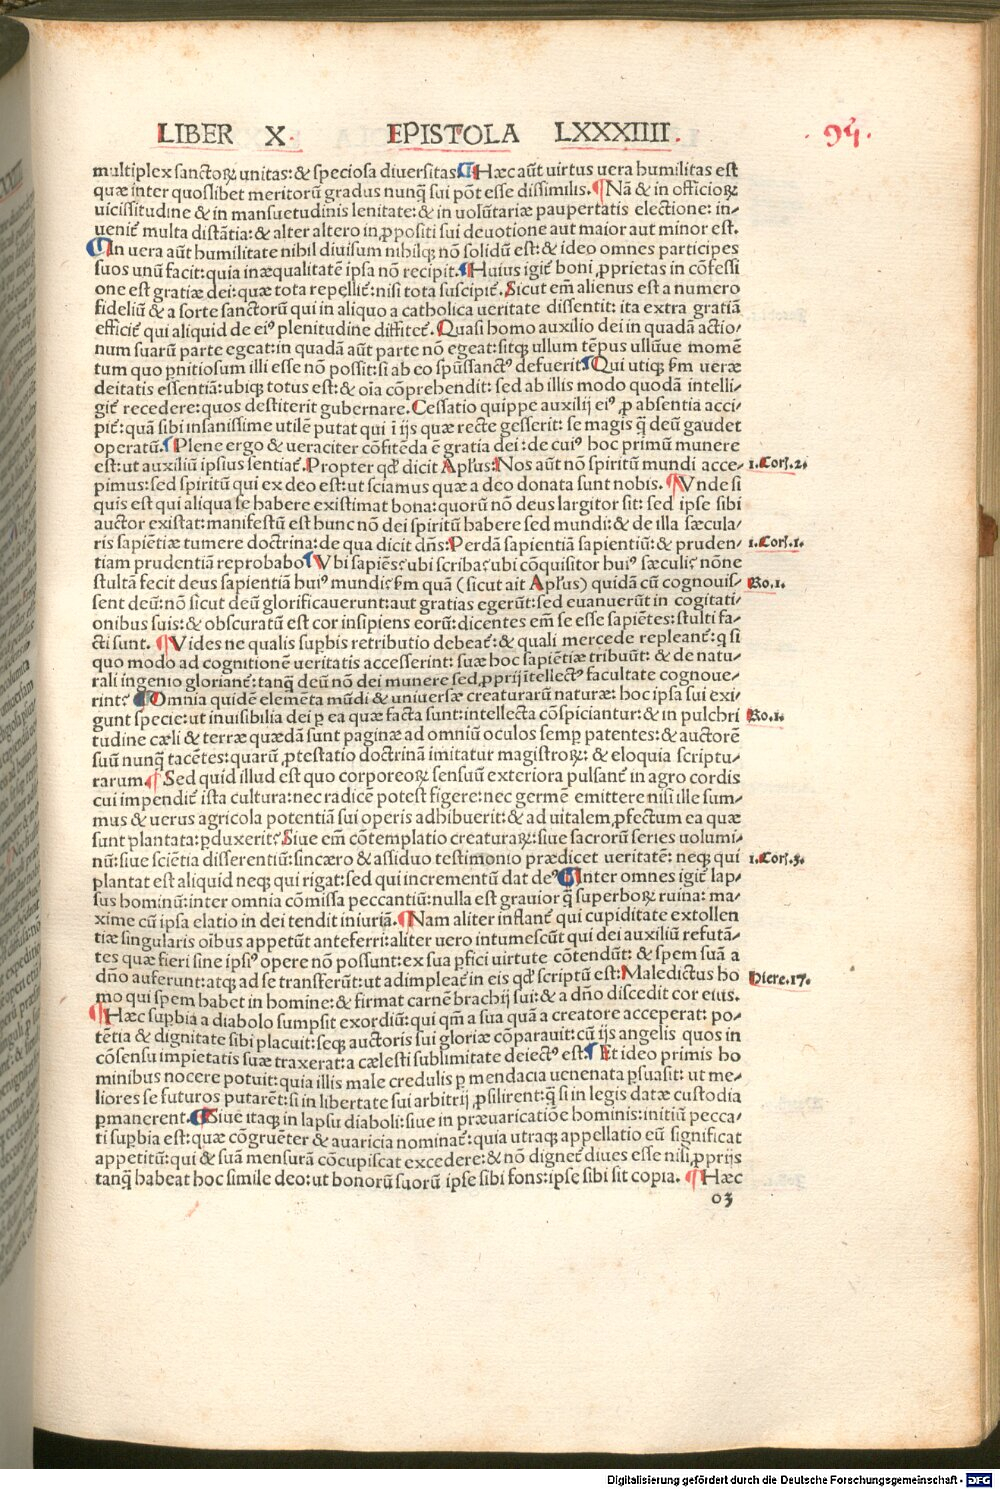 LIBER X. EPISTOLA LXXXIIII. 94.
multiplex sanctoꝝ unitas: & speciosa diuersitas. Hæc aūt uirtus uera humilitas est
quæ inter quoslibet meritorū gradus nunq̄ sui pōt esse dissimilis. Nā & in officioꝝ
uicissitudine & in mansuetudinis lenitate: & in uolūtariæ paupertatis electione: in-
ueniť multa distātia: & alter altero in ꝓpositi sui deuotione aut maior aut minor est.
In uera aūt humilitate nihil diuisum nihilqꝫ nō solidū est: & ideo omnes participes
suos unū facit: quia inæqualitatē ipsa nō recipit. Huius igiť boni ꝓprietas in cōfessi
one est gratiæ dei: quæ tota repelliť: nisi tota suscipiť. Sicut em̄ alienus est a numero
fideliū & a sorte sanctorū qui in aliquo a catholica ueritate dissentit: ita extra gratiā
efficiť qui aliquid de eiꝰ plenitudine diffiteť. Quasi homo auxilio dei in quadā actio-
num suarū parte egeat: in quadā aūt parte nō egeat: sitqꝫ ullum tēpus ullūue momē
tum quo ꝑnitiosum illi esse nō possit: si ab eo spūssanctꝰ defuerit. Qui utiqꝫ ẜm ueræ
deitatis essentiā: ubiqꝫ totus est: & oīa cōprehendit: sed ab illis modo quodā intelli-
giť recedere: quos destiterit gubernare. Cessatio quippe auxilij eiꝰ ꝓ absentia acci-
piť: quā sibi insanissime utilē putat qui ī ijs quæ recte gesserit: se magis q̄ deū gaudet
operatū. Plene ergo & ueraciter cōfitēda ē gratia dei: de cuiꝰ hoc primū munere
est: ut auxiliū ipsius sentiať. Propter qđ dicit Apl'us: Nos aūt nō spiritū mundi acce- 1. Cor. 2.
pimus: sed spiritū qui ex deo est: ut sciamus quæ a deo donata sunt nobis. Vnde si
quis est qui aliqua se habere existimat bona: quorū nō deus largitor sit: sed ipse sibi
auctor existat: manifestū est hunc nō dei spiritū habere sed mundi: & de illa sæcula-
ris sapiētiæ tumere doctrina: de qua dicit dn̄s: Perdā sapientiā sapientiū: & pruden- 1. Cor. 1.
tiam prudentiā reprobabo. Vbi sapiēs? ubi scriba? ubi cōquisitor huiꝰ sæculi? nōne
stultā fecit deus sapientiā huiꝰ mundi? ẜm quā (sicut ait Apl'us) quidā cū cognouis- Ro. 1.
sent deū: nō sicut deū glorificauerunt: aut gratias egerūt: sed euanuerūt in cogitati-
onibus suis: & obscuratū est cor insipiens eorū: dicentes em̄ se esse sapiētes: stulti fa-
cti sunt. Vides ne qualis supbis retributio debeať: & quali mercede repleanť: q̄ si
quo modo ad cognitionē ueritatis accesserint: suæ hoc sapiētiæ tribuūt: & de natu-
rali ingenio glorianť: tanq̄ deū nō dei munere sed ꝓprij ītellectꝰ facultate cognoue-
rint? Omnia quidē elemēta mūdi & uniuersæ creaturarū naturæ: hoc ipsa sui exi-
gunt specie: ut inuisibilia dei ꝑ ea quæ facta sunt: intellecta cōspiciantur: & in pulchri Ro. 1.
tudine cæli & terræ quædā sunt paginæ ad omniū oculos semꝑ patentes: & auctorē
suū nunq̄ tacētes: quarū ꝓtestatio doctrinā imitatur magistroꝝ: & eloquia scriptu-
rarum. Sed quid illud est quo corporeoꝝ sensuū exteriora pulsanť in agro cordis
cui impendiť ista cultura: nec radicē potest figere: nec germē emittere nisi ille sum-
mus & uerus agricola potentiā sui operis adhibuerit: & ad uitalem ꝓfectum ea quæ
sunt plantata: ꝓduxerit? Siue em̄ cōtemplatio creaturaꝝ: siue sacrorū series uolumi-
nū: siue sciētia disserentiū: sincæro & assiduo testimonio prædicet ueritatē: neqꝫ qui 1. Cor. 3.
plantat est aliquid neqꝫ qui rigat: sed qui incrementū dat deꝰ. Inter omnes igiť lap-
sus hominū: inter omnia cōmissa peccantiū: nulla est grauior q̄ superboꝝ ruina: ma-
xime cū ipsa elatio in dei tendit iniuriā. Nam aliter inflanť qui cupiditate extollen
tiæ singularis oībus appetūt anteferri: aliter uero intumescūt qui dei auxiliū refutā-
tes quæ fieri sine ipsiꝰ opere nō possunt: ex sua ꝑfici uirtute cōtendūt: & spem suā a
dn̄o auferunt: atqꝫ ad se transferūt: ut adimpleať in eis qđ scriptū est: Maledictus ho Hiere. 17.
mo qui spem habet in homine: & firmat carnē brachij sui: & a dn̄o discedit cor eius.
Hæc supbia a diabolo sumpsit exordiū: qui qm̄ a sua quā a creatore acceperat: po-
tētia & dignitate sibi placuit: seqꝫ auctoris sui gloriæ cōparauit: cū ijs angelis quos in
cōsensu impietatis suæ traxerat: a cælesti sublimitate deiectꝰ est. Et ideo primis ho
minibus nocere potuit: quia illis male credulis ꝑ mendacia uenenata ꝑsuasit: ut me-
liores se futuros putarēt: si in libertate sui arbitrij ꝓsilirent: q̄ si in legis datæ custodia
ꝑmanerent. Siue itaqꝫ in lapsu diaboli: siue in præuaricatiōe hominis: initiū pecca-
ti supbia est: quæ cōgruēter & auaricia nominať: quia utraqꝫ appellatio eū significat
appetitū: qui & suā mensurā cōcupiscat excedere: & nō digneť diues esse nisi ꝓprijs
tanq̄ habeat hoc simile deo: ut bonorū suorū ipse sibi fons: ipse sibi sit copia. Hæc
o3
Digitalisierung gefördert durch die Deutsche Forschungsgemeinschaft - DFG